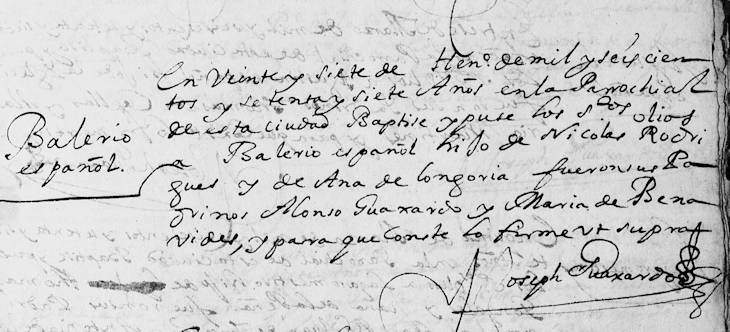 En Veinte y siete de Hen.º de mil y seis cien-
tos y setenta y siete Años en la Parrochial
de esta ciudad Baptise y puse los s.tos olios
Balerio
español.
a Balerio español hijo de Nicolas Rodri
gues y de Ana de Longoria fueron sus Pa-
drinos Alonso Guaxardo y Maria de Bena-
vides, y para que conste lo firme Vt supra
Joseph Guaxardo